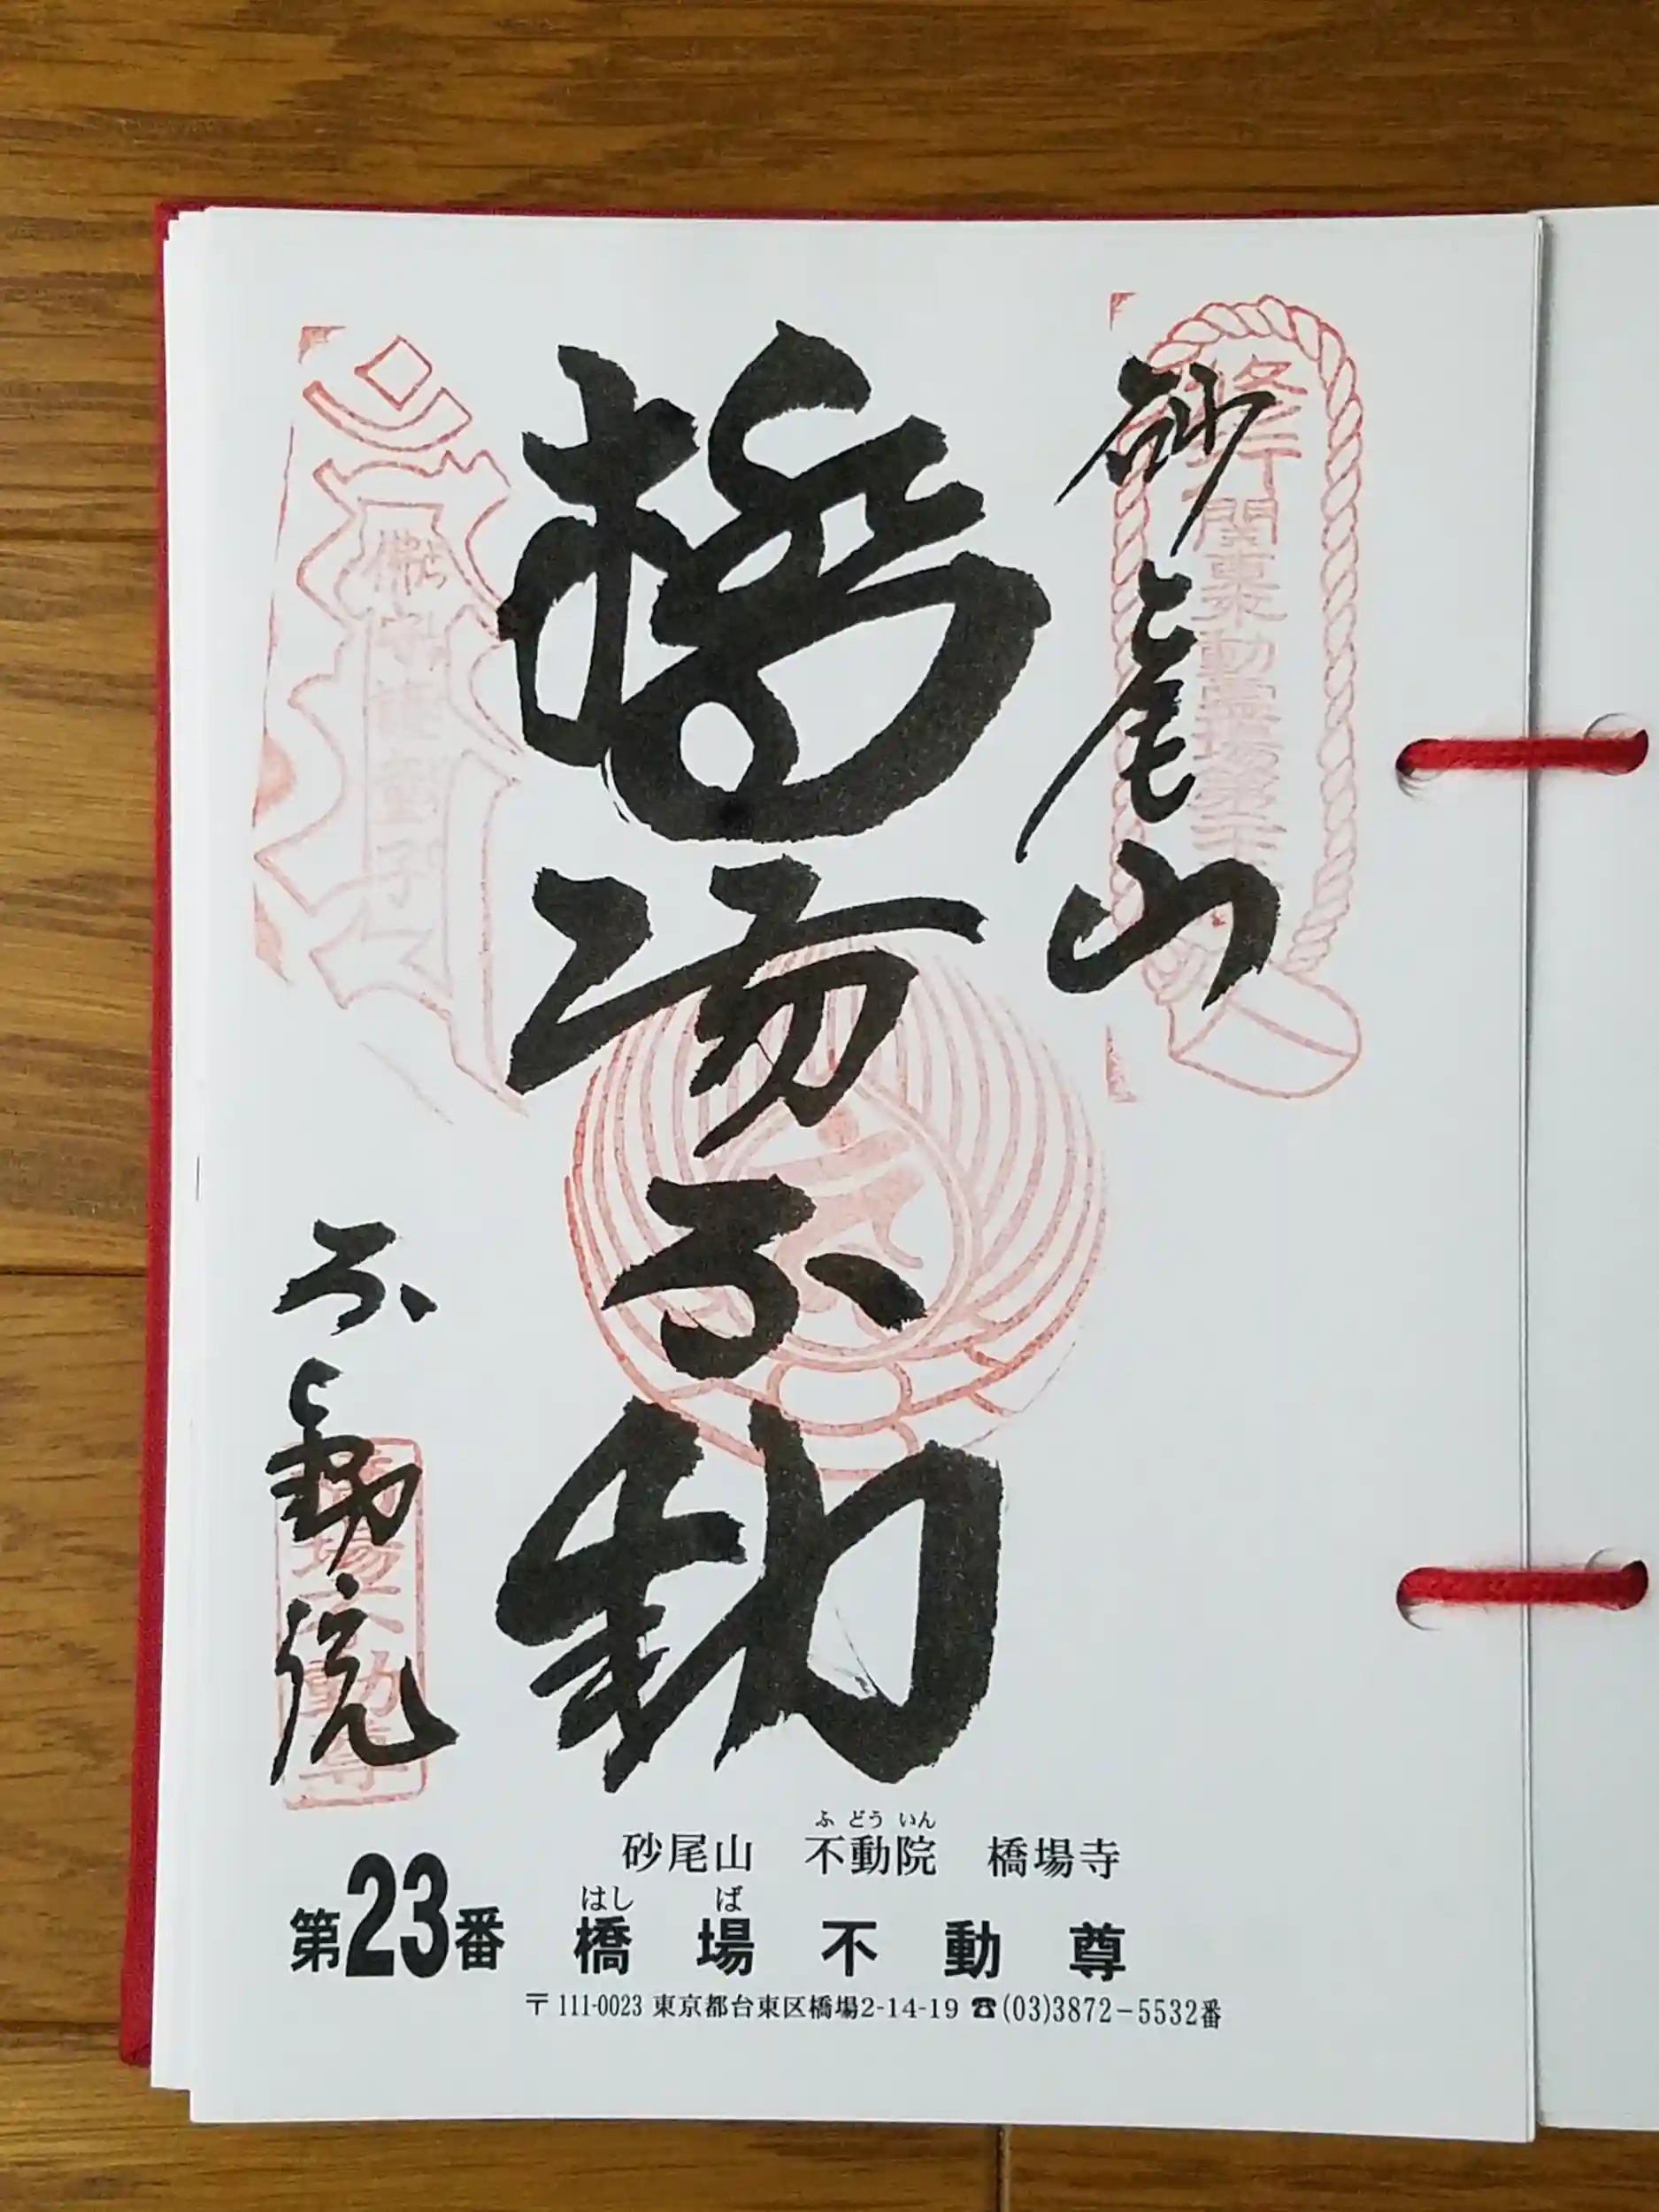 砂尾山
橋場不動
不動院
橋場不動尊
ふどういん
砂尾山 不動院 橋場寺
はし ば
第23番 橋場不動尊
〒111-0023 東京都台東区橋場2-14-19 ☎(03)3872-5532番